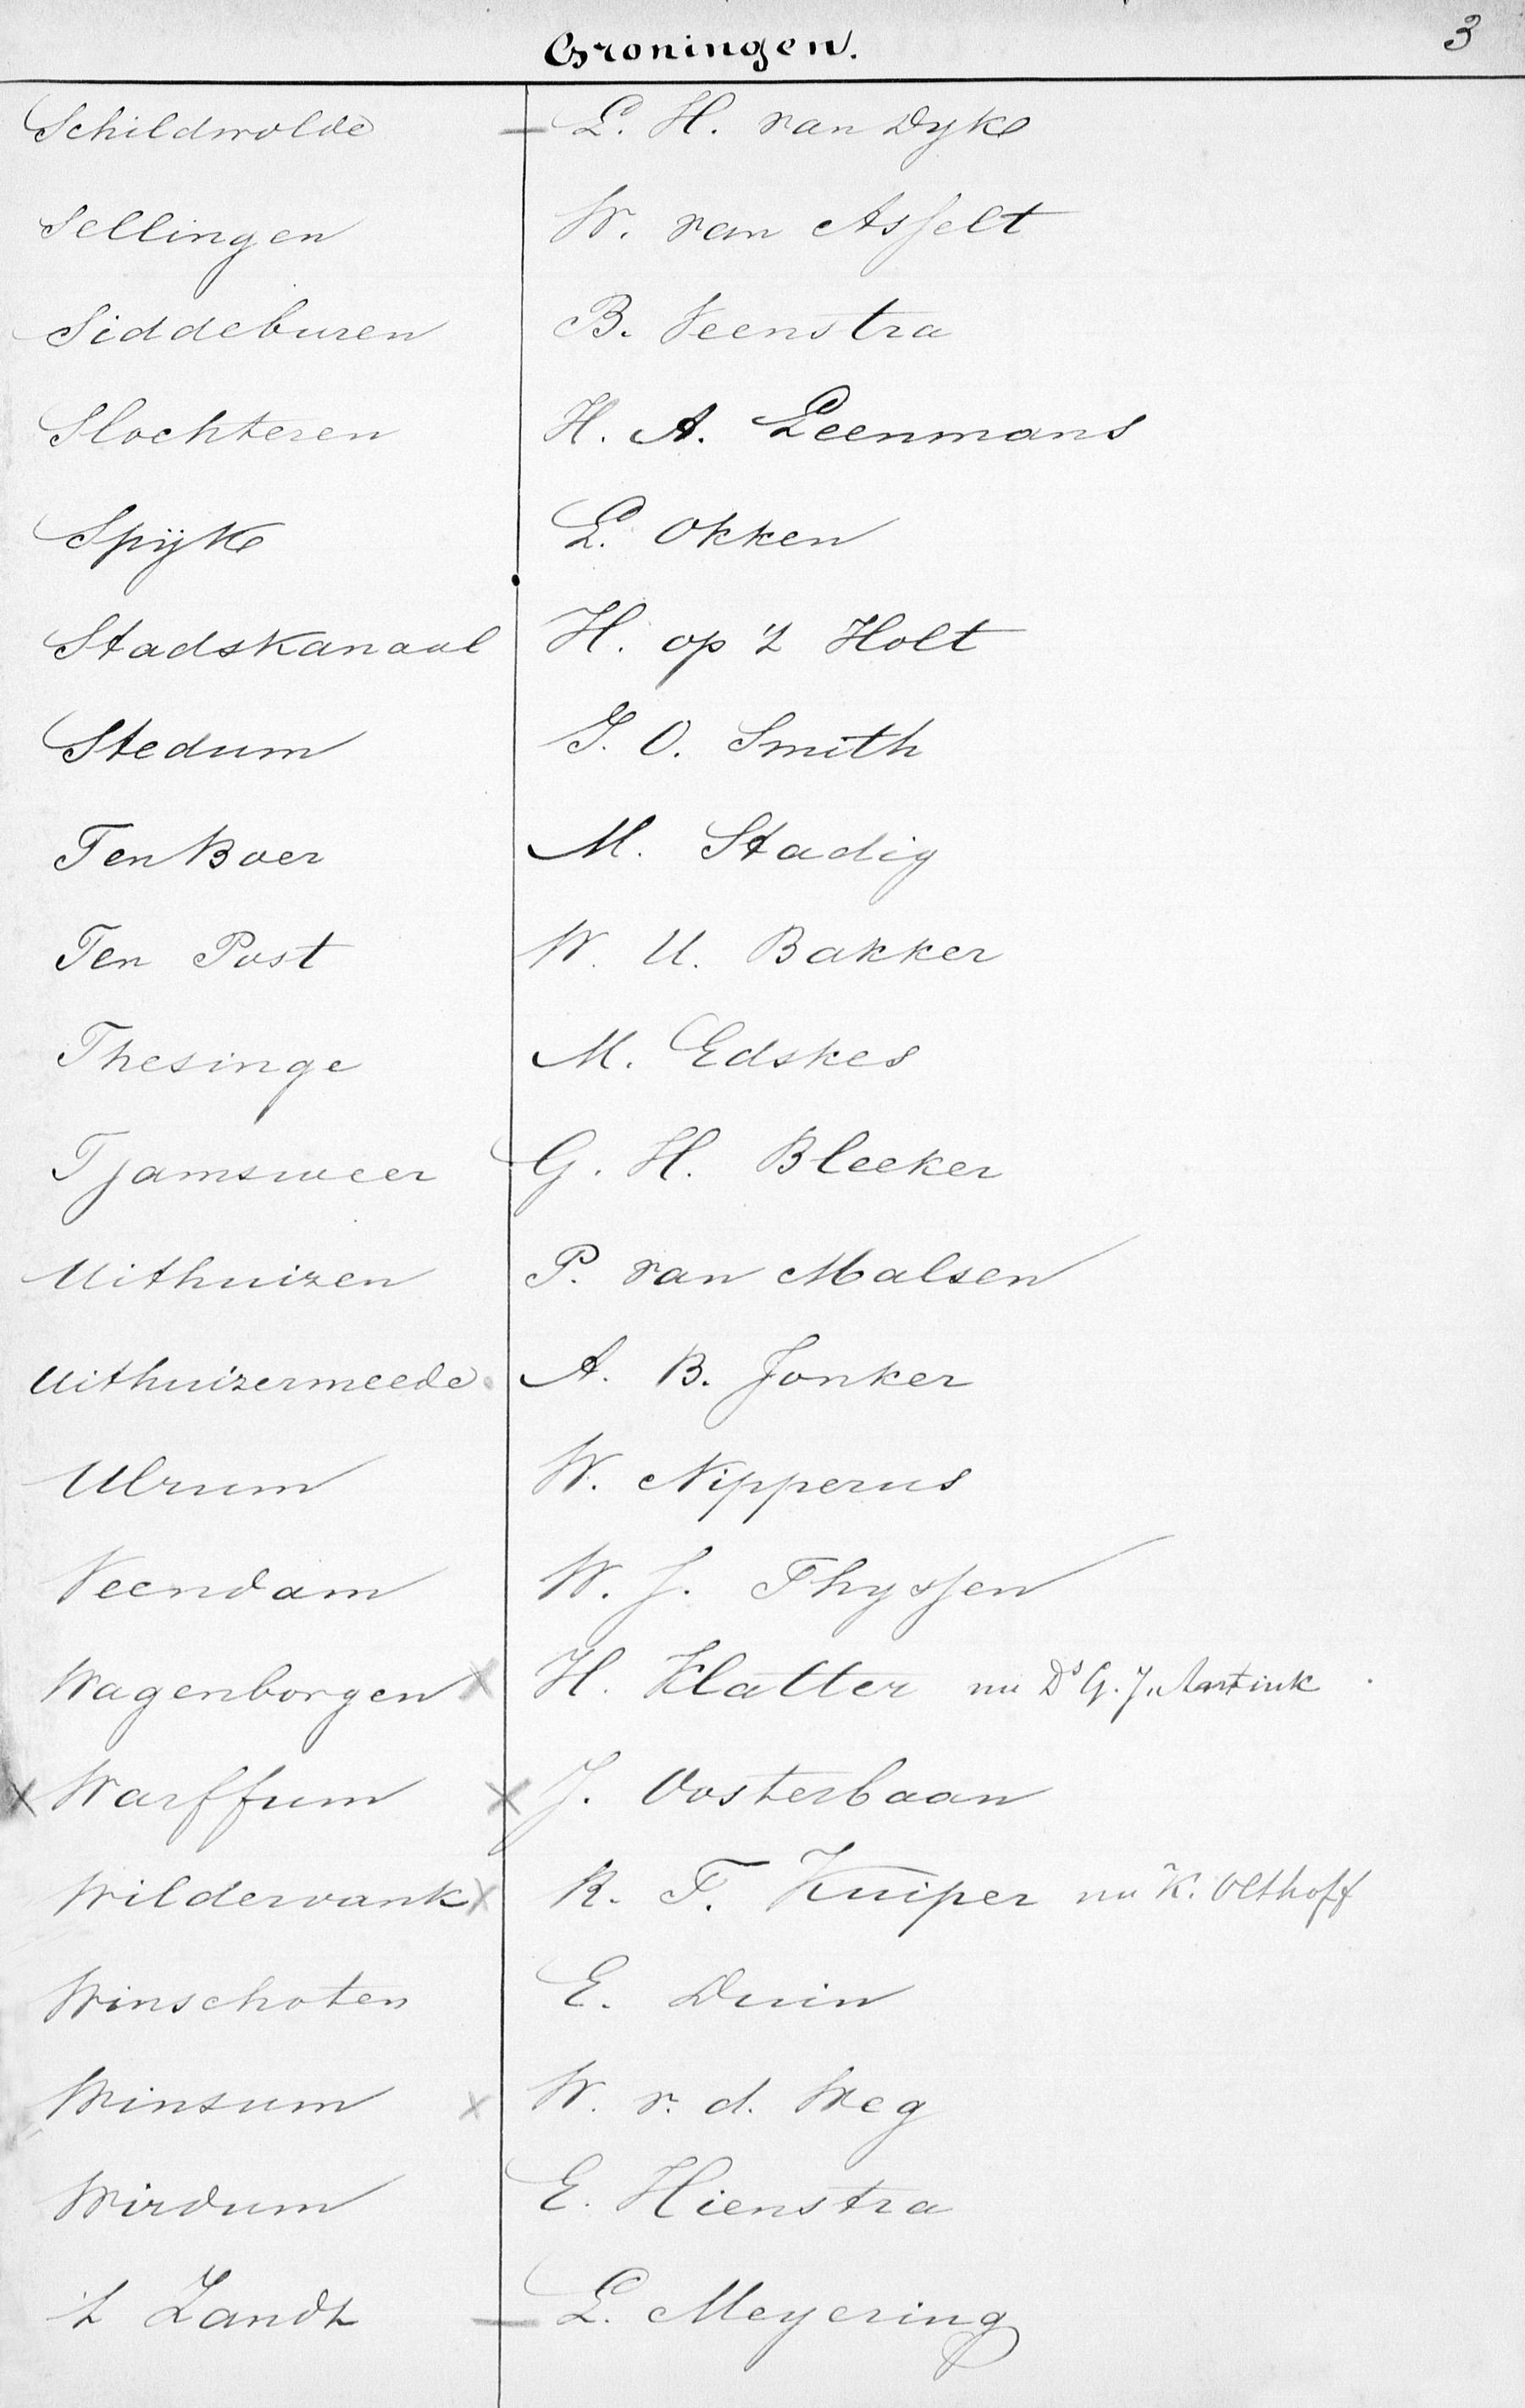 Groningen. 3
Schildwolde L. H. van Dyk
Sellingen W. van Asselt
Siddeburen B. Veenstra
Slochteren H. A. Leenmans
Spijk L. Okken
Stadskanaal H. op 't Holt
Stedum J. O. Smith
Ten Boer M. Stadig
Ten Post W. U. Bakker
Thesinge M. Edskes
Tjamsweer G. H. Bleeker
Uithuizen P. van Malsen
Uithuizermeede A. B. Jonker
Ulrum W. Nipperus
Veendam W. J. Thyssen
Wagenborgen x H. Klatter nu Ds G. J.
x Warffum x J. Oosterbaan
Wildervank x K. F. Kuiper nu K. Olthoff
Winschoten E. Duin
Winsum x W. v. d. Weg
Wirdum E. Hienstra
't Zandt L. Meyering